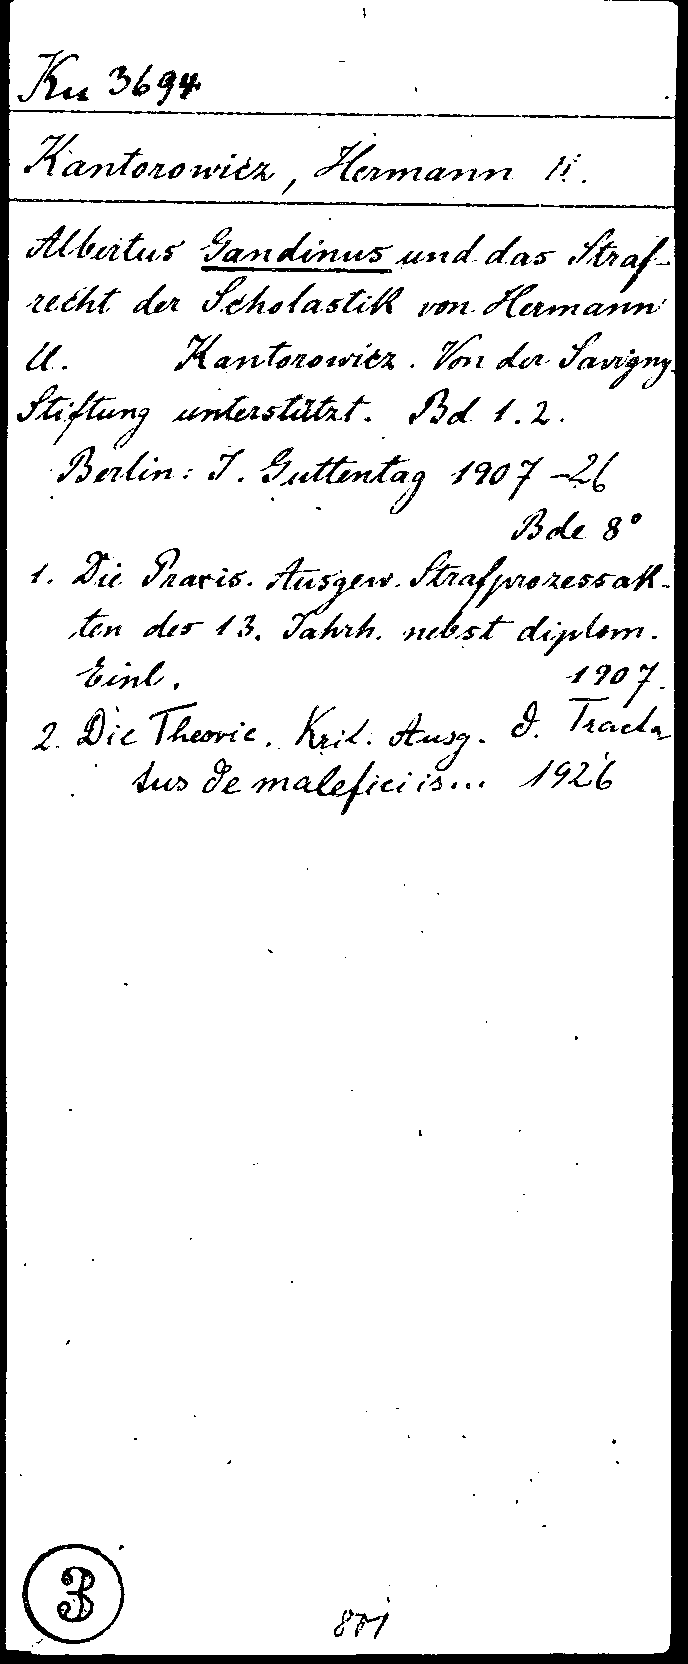 Ku 3694
Kantorowicz, Hermann U.
Albertus Gandinus und das Straf-
recht der Scholastik von Hermann
U. Kantorowicz. Von der Savigny-
Stiftung unterstützt. Bd 1.2.
Berlin: J. Guttentag 1907-26
Bde 8°
1. Die Praxis. Ausgew. Strafprozessak-
ten des 13. Jahrh. nebst diplom.
Einl. 1907.
2. Die Theorie. Krit. Ausg. d. Tracta
tus de maleficiis... 1926
3